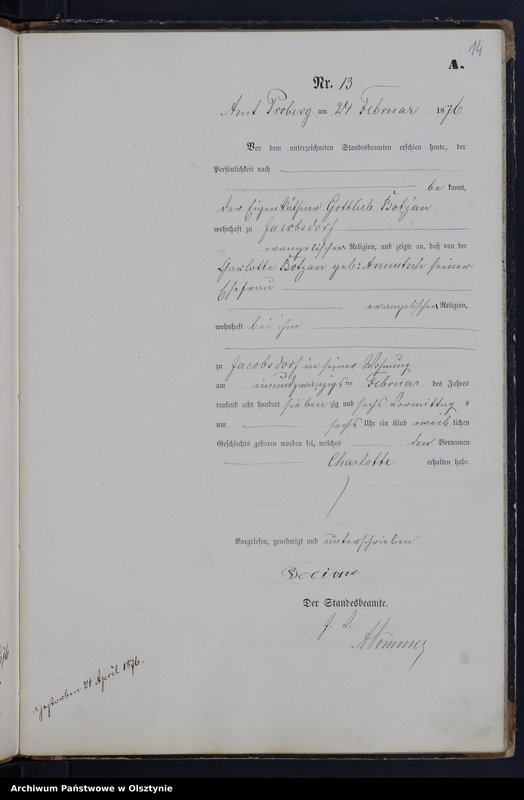 14
A.
Nr. 13
Amt Proberg am 24 Februar 1876
Vor dem unterzeichneten Standesbeamten erschien heute, der
Persönlichkeit nach
be kannt,
der Eigenkäthner Gottlieb Botzan
wohnhaft zu Jacobsdorf
evangelischer Religion, und zeigte an, daß von der
Charlotte Botzan geb: seiner
Ehefrau
evangelischer Religion,
wohnhaft bei ihm
zu Jacobsdorf in seiner Wohnung
am einundzwanzigsten Februar des Jahres
tausend acht hundert sieben zig und sechs Vormittag s
um sechs Uhr ein Kind weib lichen
Geschlechts geboren worden sei, welches den Vornamen
Charlotte erhalten habe.
Vorgelesen, genehmigt und unterschrieben
Der Standesbeamte.
J. V.
Gestorben 24 April 1876.
Archiwum Państwowe w Olsztynie